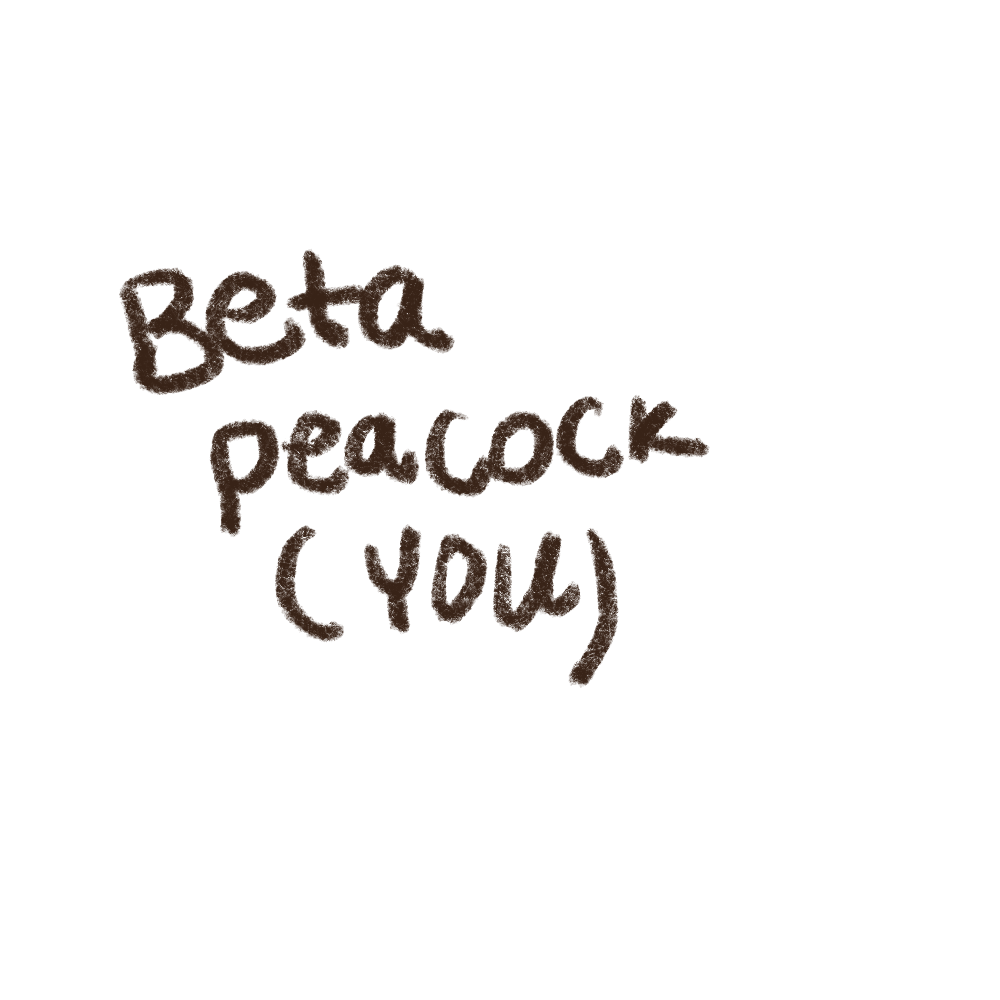 Beta
peacock
(YOU)